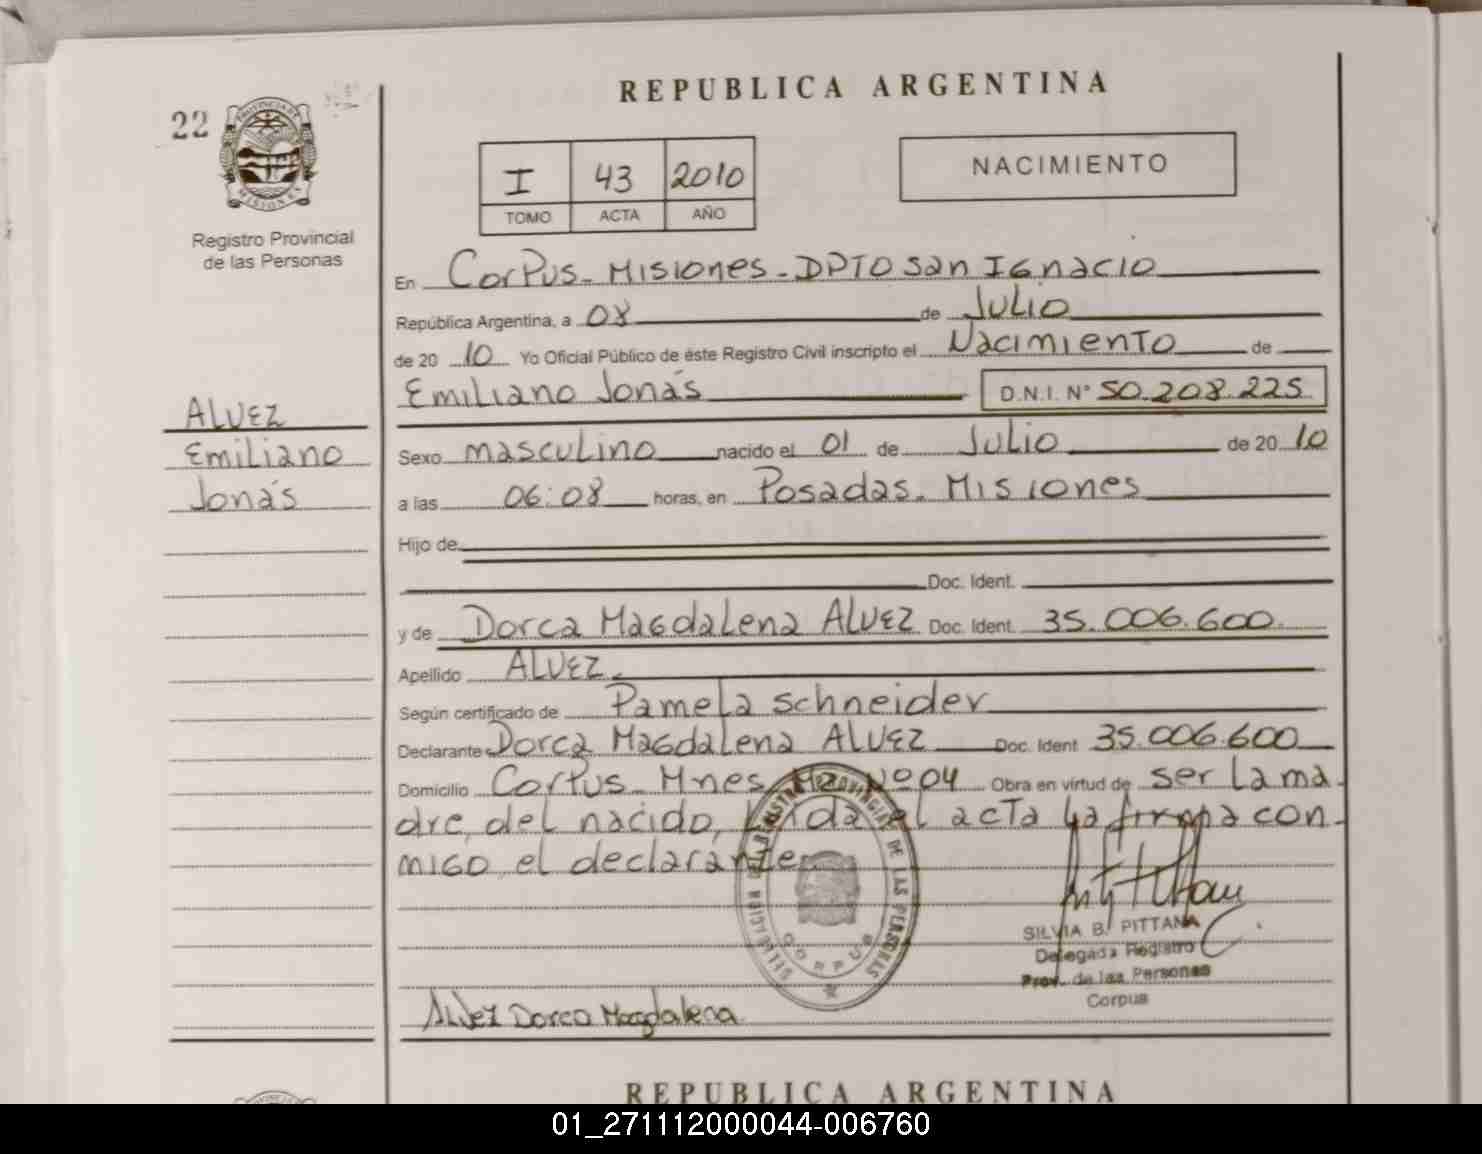 REPUBLICA ARGENTINA
22
PROVINCIA DE
MISIONES
Registro Provincial
de las Personas
I 43 2010
TOMO ACTA AÑO
NACIMIENTO
En Corpus - Misiones - DPTO San Ignacio
República Argentina, a 08 de Julio
de 20 10 Yo Oficial Público de éste Registro Civil inscripto el Nacimiento de
Emiliano Jonás D.N.I. N° 50.208.225
ALVEZ
Emiliano
Jonás
Sexo masculino nacido el 01 de Julio de 20 10
a las 06:08 horas, en Posadas - Misiones
Hijo de
Doc. Ident.
y de Dorca Magdalena ALVEZ Doc. Ident. 35.006.600
Apellido ALVEZ
Según certificado de Pamela Schneider
Declarante Dorca Magdalena ALVEZ Doc. Ident 35.006.600
Domicilio Corpus - Mnes Mz Nº 04 Obra en virtud de ser la ma
dre, del nacido, Leída el acta la firma con
migo el declarante
DELEGACION DEL REGISTRO PROVINCIAL DE LAS PERSONAS
CORPUS
SILVIA B. PITTANA
Delegada Registro
Prov. de las Personas
Corpus
Alvez Dorca Magdalena
REPUBLICA ARGENTINA
01_271112000044-006760